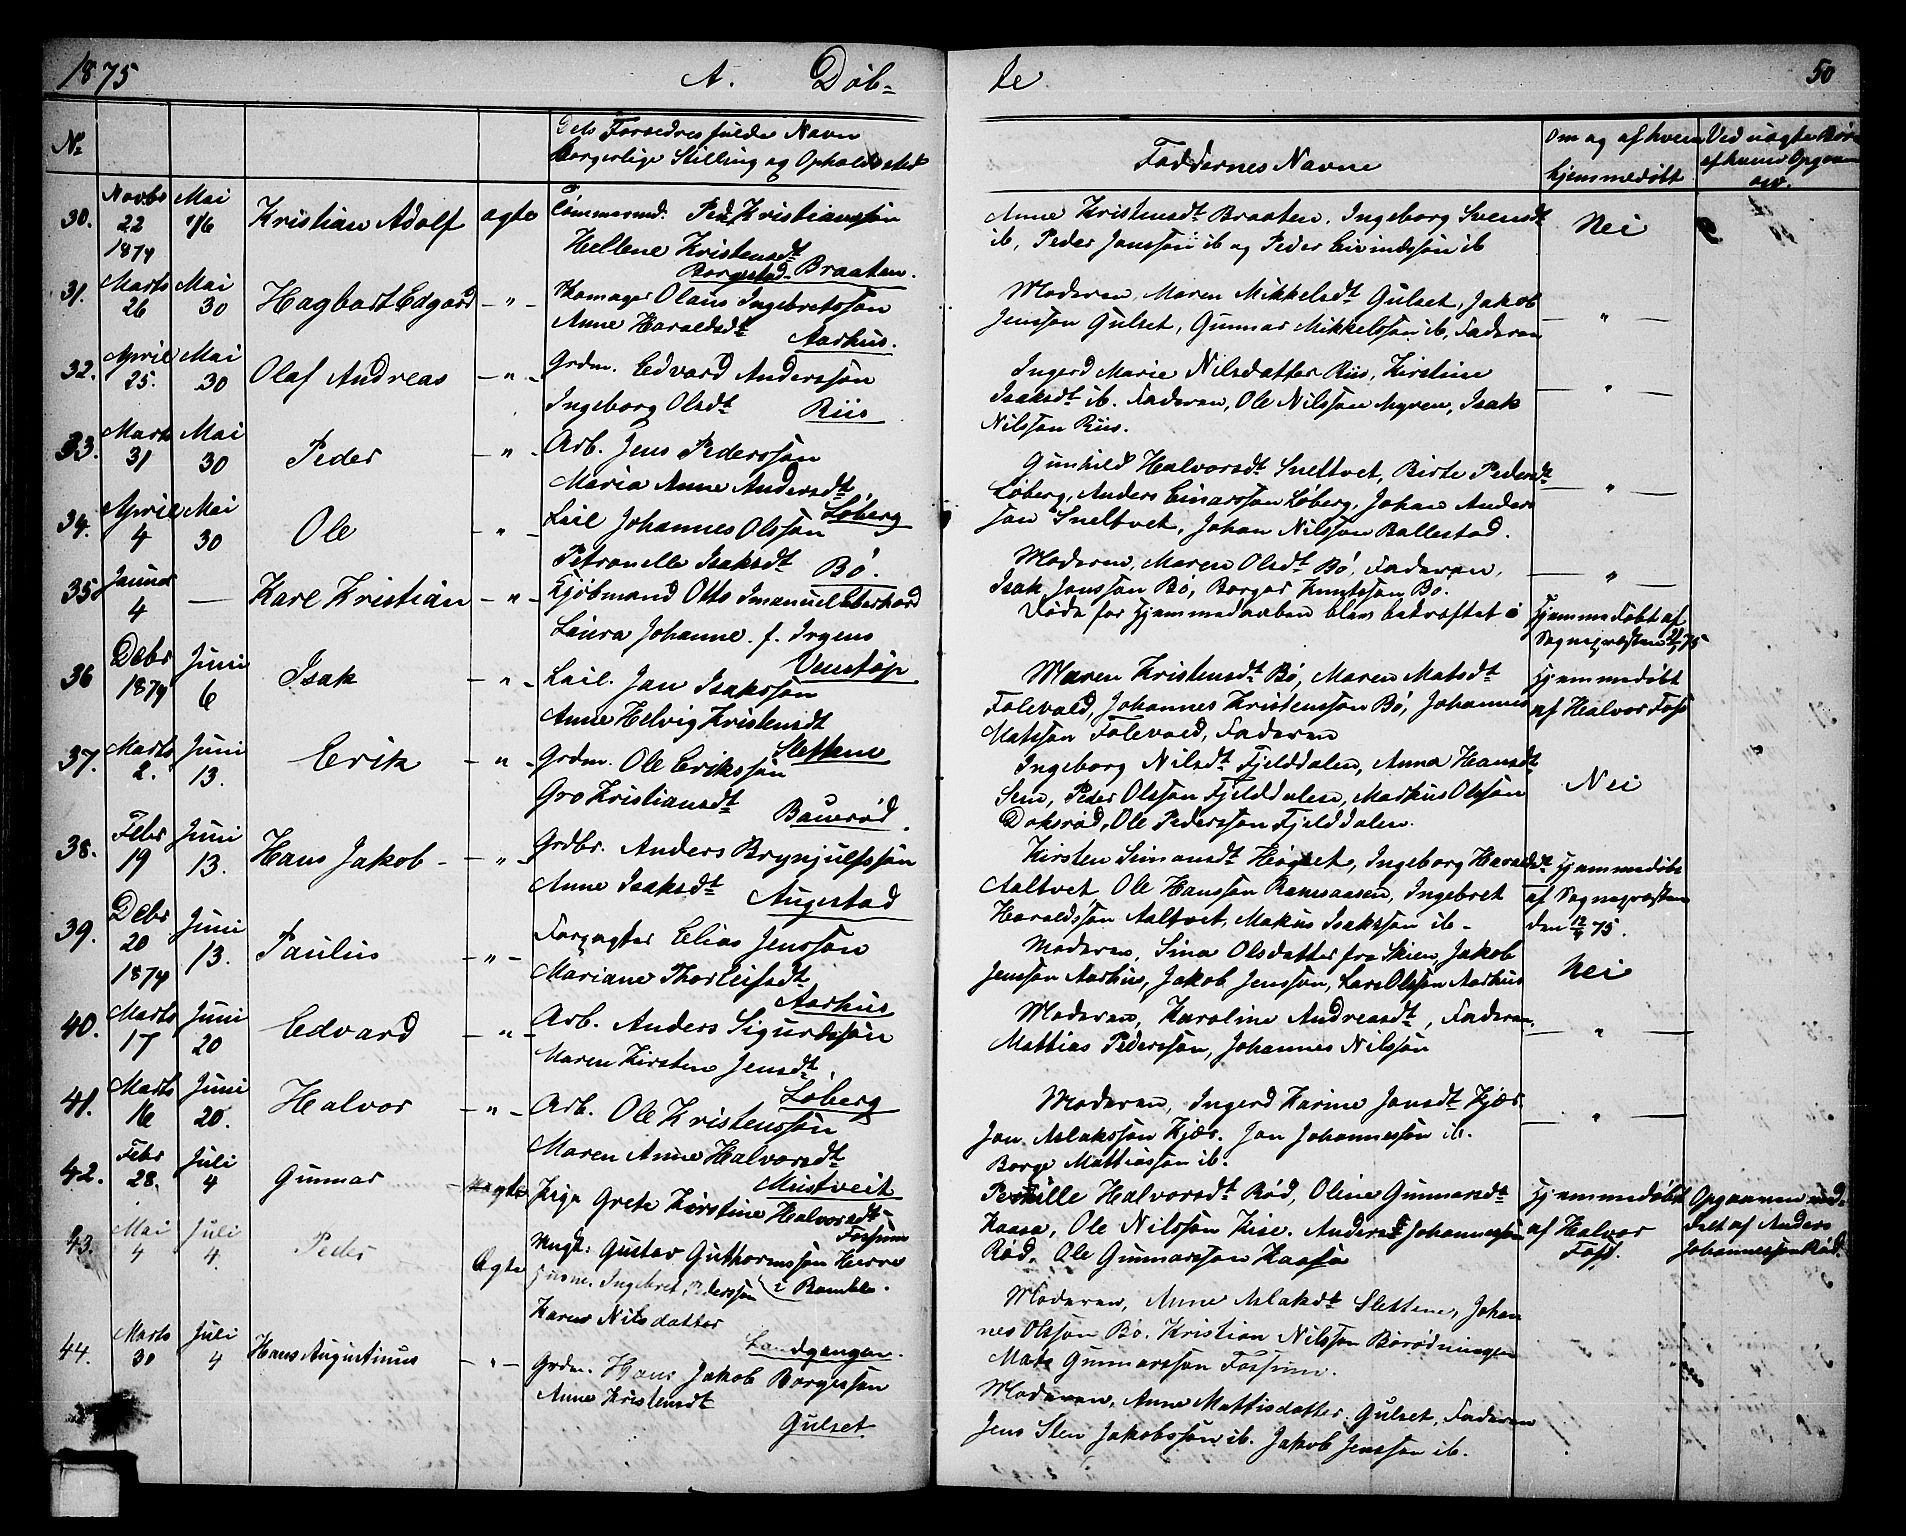 1875 A. Døb= te 50
No
Dets Forældres fulde Navn
borgerlige Stilling og Opholdssted
Faddernes Navne
Om og af hvem
hjemmedøbt
Ved uægte Børn
af hvem Opgaven
30. Novbr 22 1874 Mai 16 Kristian Adolf ægte Tømmermd. Ped. Kristianssøn
Hellene Kristensdt
Borgestad Braaten.
Anne Kristensdt Braaten, Ingeborg Svensdt
ib, Peder Janssøn ib og Peder Eivindssøn ib
Nei
31. Marts 26 Mai 30 Hagbart Edgard — " — Skomager Olaus Ingebretssøn
Anne Haraldsdt Aarhus.
Moderen, Maren Mikkelsdt Gulset, Jakob
Jenssøn Gulset, Gunnar Mikkelssøn ib, Faderen
— " —
32. April 25. Mai 30 Olaf Andreas — " — Grdm. Edvard Anderssøn
Ingeborg Olsdt Riis
Ingerd Marie Nilsdatter Riis, Kirstine
Isaksdt ib. Faderen, Ole Nilssøn Myren, Isak
Nilssøn Riis.
— " —
33. Marts 31 Mai 30 Peder — " — Arb. Jens Pederssøn
Maria Anne Andersdt,
Løberg
Gunhild Halvorsdt Sneltvet, Birte Pedersdt
Løberg, Anders Einarssøn Løberg, Johan Anders
søn Sneltvet, Johan Nilssøn Ballestad.
— " —
34. April 4 Mai 30 Ole — " — Leil. Johannes Olssøn
Petronelle Isaksdt Bø.
Moderen, Maren Olsdt Bø, Faderen,
Isak Janssøn Bø, Borger Knutssøn Bø.
— " —
35 Januar 4 — Karl Kristian — " — Kjøbmand Otto Imanuel Eberhard
Laura Johanne f. Irgens
Venstøp
Døde før Hjemmedaaben blev bekræftet i
Hjemmedøbt af
Sognepresten 75
36 Debr 1874 Juni 6 Isak — " — Leil. Jan Isakssøn
Anne Helvig Kristensdt
Slettene
Maren Kristensdt Bø, Maren Matsdt
Folevald, Johannes Kristenssøn Bø, Johannes
Matssøn Folevald, Faderen
Hjemmedøbt
af Halvor Foss
37. Marts 2. Juni 13. Erik — " — Grdm. Ole Erikssøn
Gro Kristiansdt
Bauerød
Ingeborg Nilsdt Fjelddalen, Anna Hansdt
Sem, Peder Olssøn Fjelddalen, Markus Olssøn
Doksrød, Ole Pederssøn Fjelddalen.
Nei
38. Febr 19 Juni 13. Hans Jakob — " — Grdbr. Anders Brynjulfssøn
Anne Isaksdt
Augestad
Kirsten Simonsdt Høgset, Ingeborg Haraldsdt
Aaltvet Ole Hanssøn Ramsaasen, Ingebret
Haraldssøn Aaltvet, Makus Isakssøn ib —
Hjemmedøbt
af Sognepresten
den 12/4 75.
39. Debr 20 1874 Juni 13. Paulus — " — Forpagter Elias Jenssøn
Mariane Thorleifsdt
Aarhus
Moderen, Sina Olsdatter fra Skien, Jakob
Jenssøn Aarhus, Jakob Jenssøn, Lars Olssøn Aarhus
Nei
40. Marts 17 Juni 20 Edvard — " — Arb. Anders Sigurdssøn
Maren Kirsten Jensdt,
Løberg
Moderen, Karoline Andreasdt, Faderen,
Mattias Pederssøn, Johannes Nilssøn
— " —
41. Marts 16 Juni 20. Halvor — " — Arb. Ole Kristenssøn
Maren Anne Halvorsdt
Mustveit
Moderen, Ingerd Karine Jansdt Kjær.
Jon Aslakssøn Kjær. Jon Johannessøn ib.
Borge Mattiassøn ib.
— " —
42. Febr 28. Juli 4 Gunnar uægte Pige Grete Kirstine Halvorsdt
Fossum
Ungk: Gustav Guthormssøn Herre
i Bamble.
Pernille Halvorsdt Rød, Oline Gunnarsdt
Kaasa, Ole Nilssøn Kise. Anders Johannessøn
Rød, Ole Gunnarssøn Kaasa
Hjemmedøbt
af Halvor
Foss.
Opgaven ind-
fort af Anders
Johannessøn Rød.
43. Mai 4 Juli 4. Peder Ægte Husm. Ingebret Pederssøn
Karen Nilsdatter
Landgangen.
Moderen, Anne Aslaksdt Slettene, Johan
nes Olssøn Bø, Kristian Nilssøn Børødningen
Mats Gunnarssøn Fossum.
44. Marts 30 Juli 4 Hans Augustinus — " — Grdm. Hans Jakob Borgessøn
Anne Kristensdt
Gulset
Moderen, Anne Mattisdatter Gulset, Faderen
Jens Sten Jakobssøn ib. Jakob Jenssøn ib.